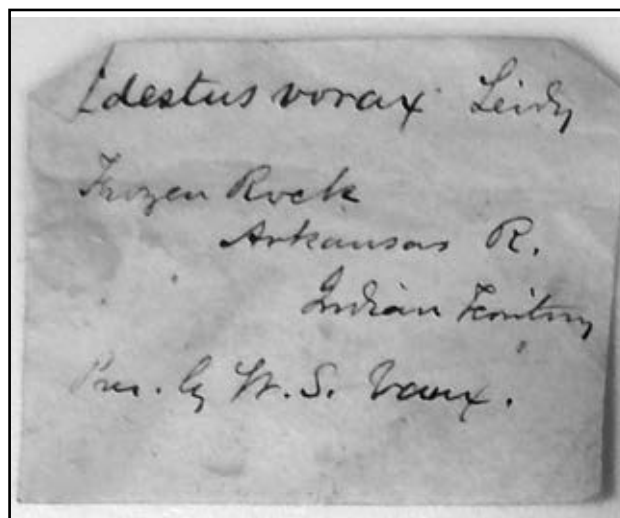 Edestus vorax Leidy
Frozen Rock
Arkansas R.
Indian Territory
Pres. by W. S. Vaux.